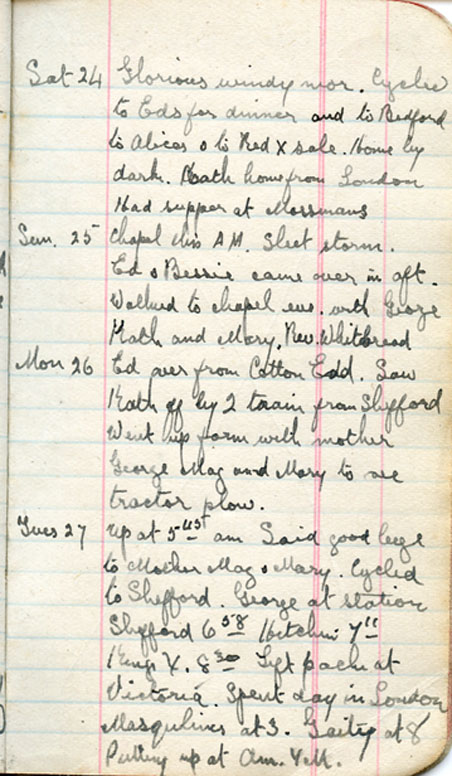 Sat 24 Glorious windy mor. Cycled
to Eds for dinner and to Bedford
to Alices & to Red X sale. Home by
dark. Kath home from London
Had supper at Mossmans
Sun. 25 Chapel this A.M. Sleet storm.
Ed & Bessie came over in aft.
Walked to chapel eve. with George
Kath and Mary. Rev. Whitbread
Mon 26 Ed over from Cotton Edd. Saw
Kath off by 2 train from Shefford
Went up farm with mother
George Mag and Mary to see
tractor plow.
Tues 27 Up at 5 45 am Said good bye
to Mother Mag & Mary. Cycled
to Shefford. George at station
Shefford 6 58 Hitchin 7 11
Kings X. 8 30 Left pack at
Victoria. Spent day in London
Masqulines at 3. Gaity at 8
Putting up at Am. Y.M.